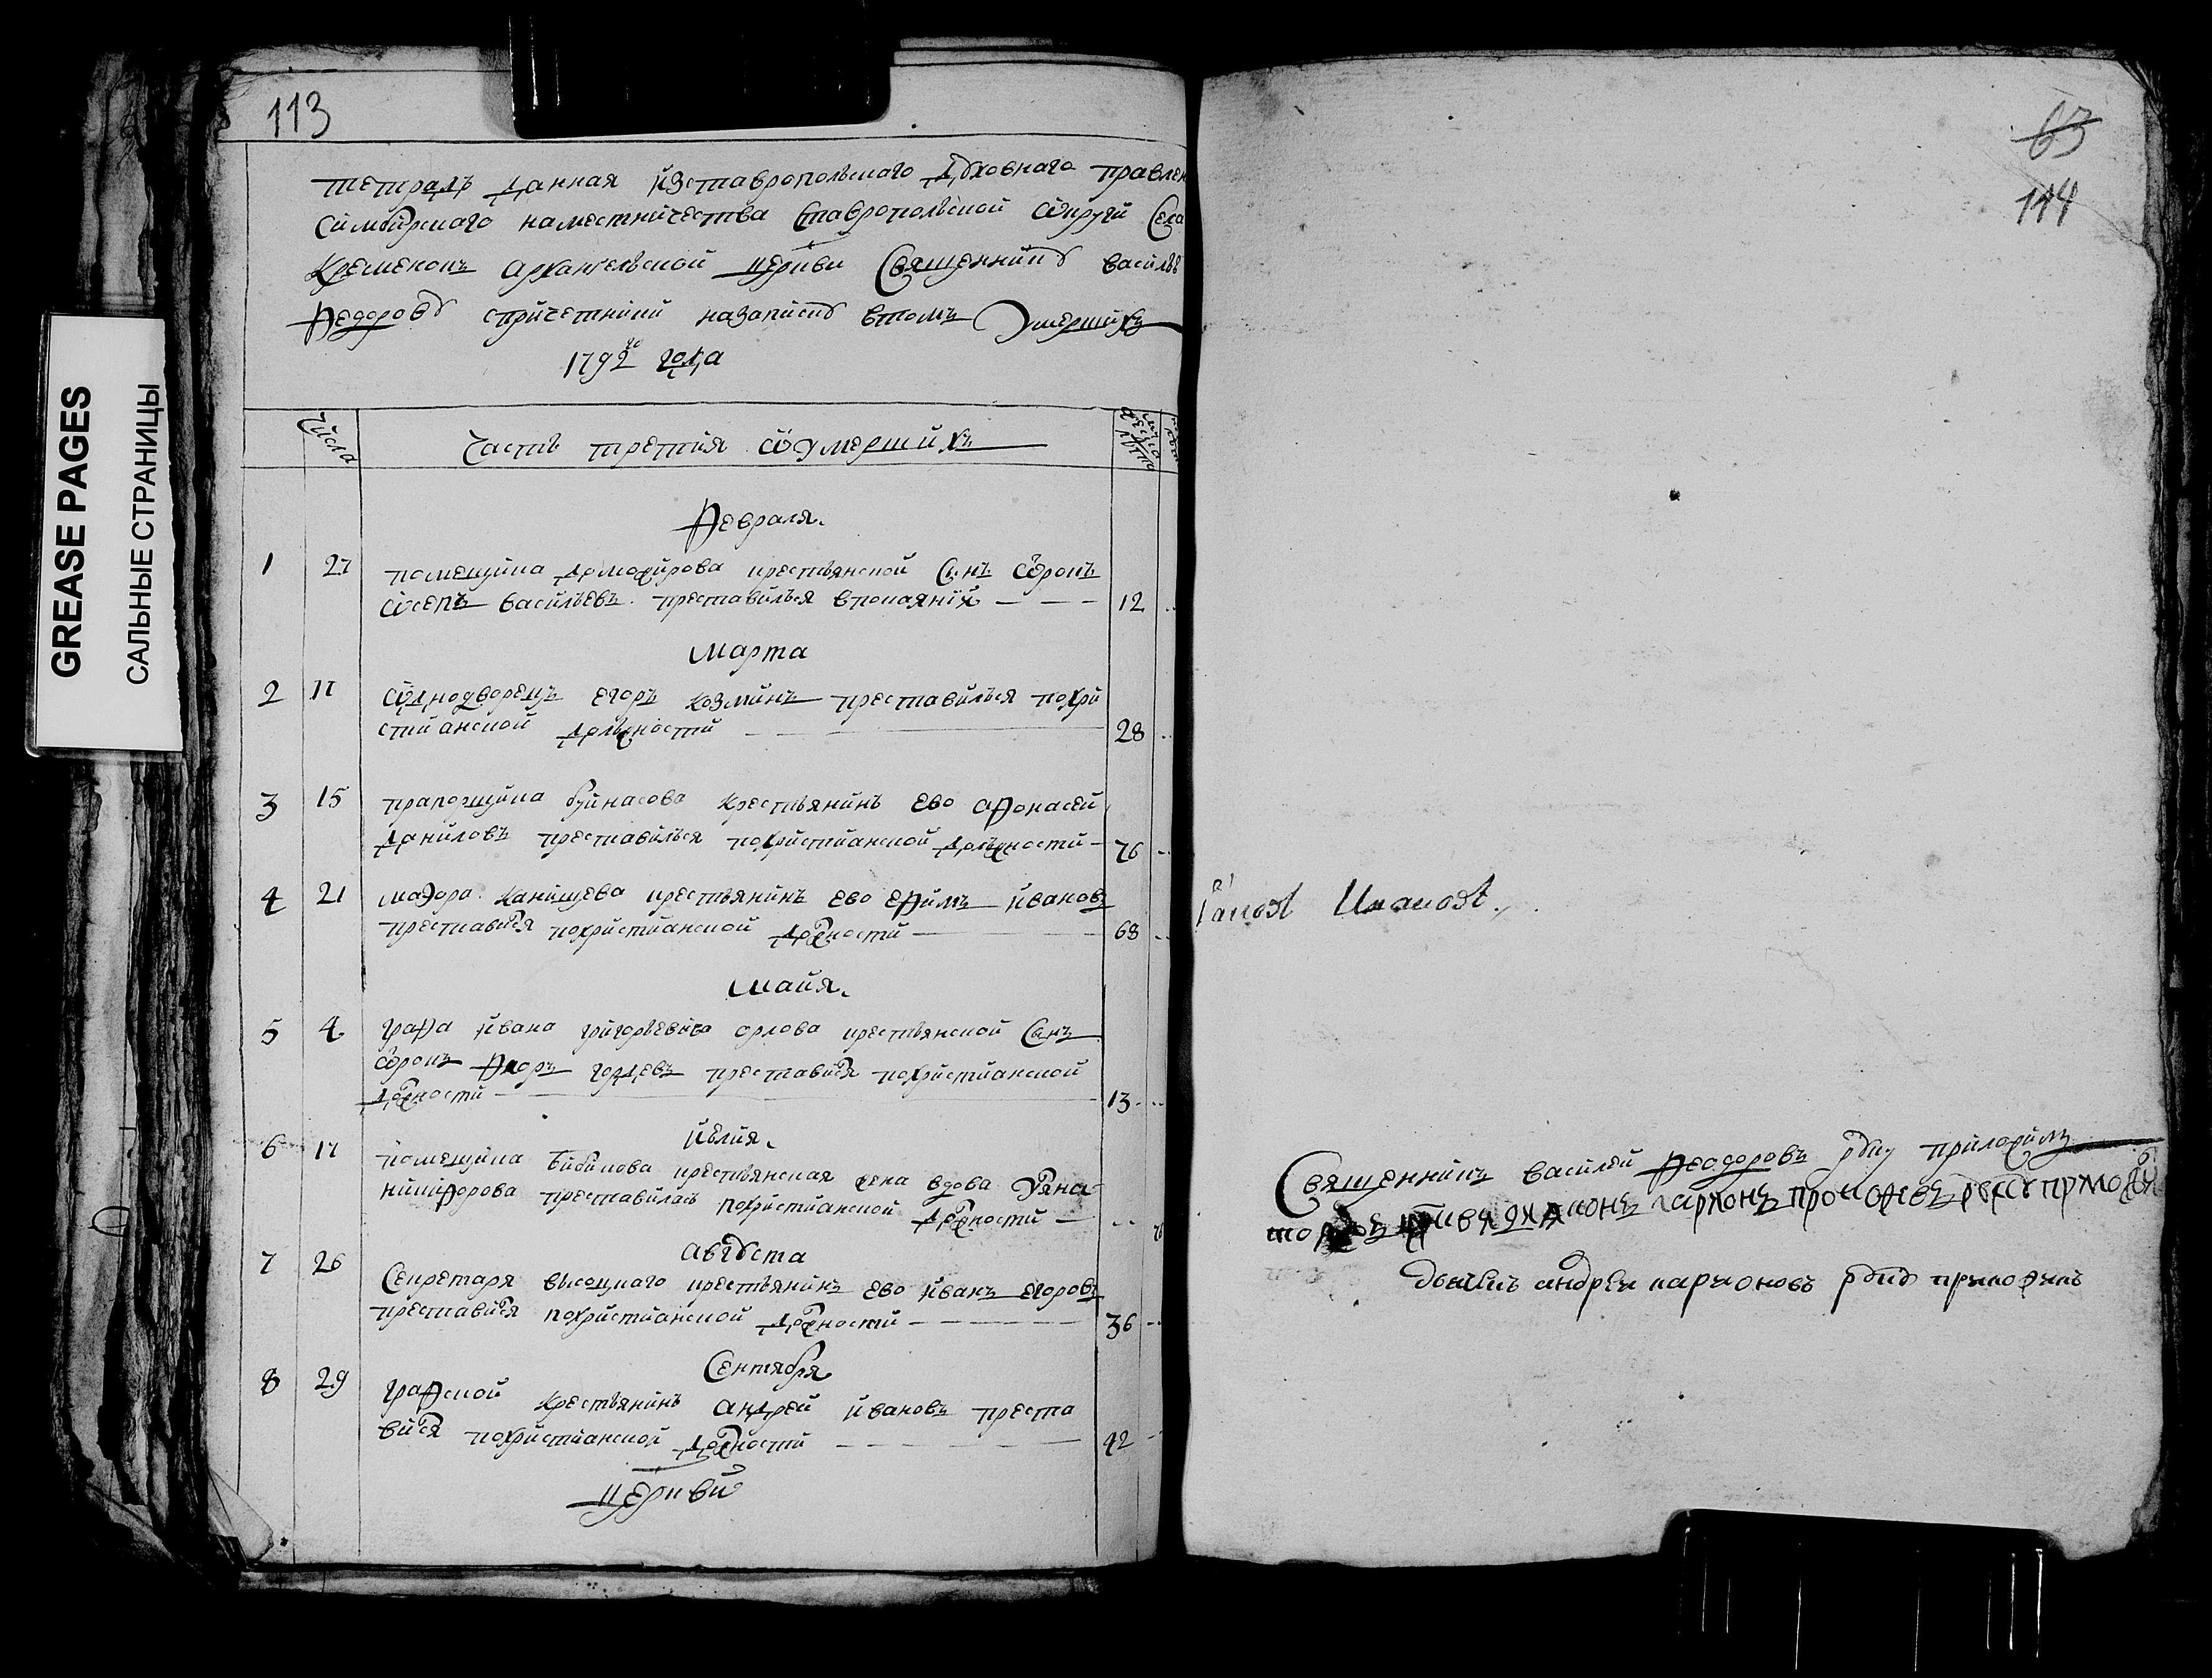 113
тетрадь данная изставропольскаго духовнаго правлен
симбирскаго наместничества ставропольской округи села
кременокъ архангельской церкви священнику василью
федорову спричетники назаписку втомъ умершихъ
1792го года
числа
часть третия о умершихъ
февраля
1 27 помещика крестьянской сынъ отрокъ
осепъ васильевъ преставилься впокаянии 12
марта
2 11 однодворецъ егоръ козминъ преставилься похри
стианской должности 28
3 15 прапорщика буинасова крестьянинъ ево афонасей
даниловъ преставилься похристианской должности 76
4 21 маэора канищева крестьянинъ ево ефимъ ивановъ
преставился похристианской должности 68
майя
5 4 графа ивана григорьевича орлова крестьянской сынъ
отрокъ преставился похристианской
должности 13
июлия
6 17 помещика бибикова крестьянская жена вдова
никифорова преставилась похристианской должности
августа
7 26 секретаря высоцкаго крестьянинъ ево иванъ егоровъ
преставился похристианской должности 36
сентября
8 29 графской крестьянинъ андрей ивановъ преста
вился похристианской должности 42
церкви
63
114
священникъ василей феодоровъ руку приложилъ
дьячекъ андреи карионовъ руку приложилъ
GREASE PAGES
САЛЬНЫЕ СТРАНИЦЫ